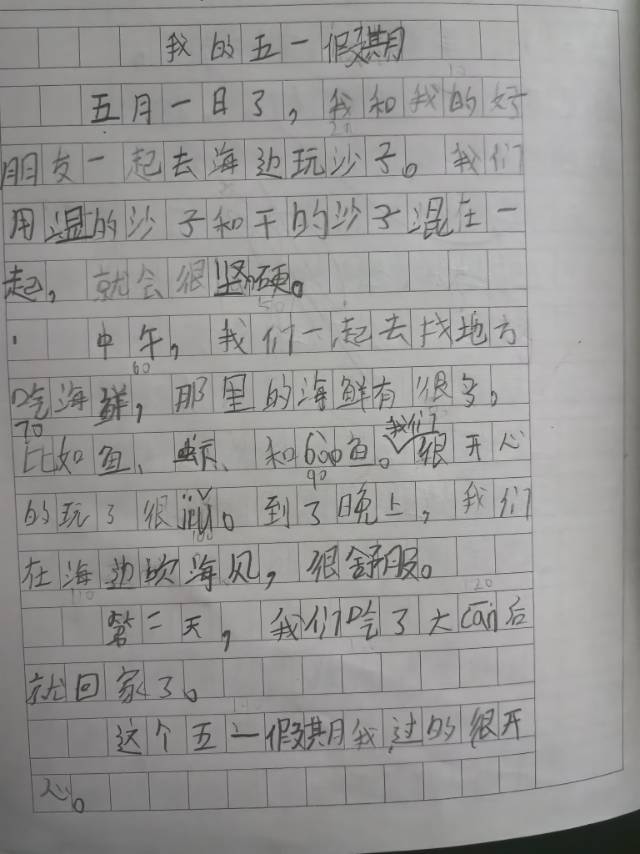 我的五一假期
五月一日了，我和我的好
朋友一起去海边玩沙子。我们
用湿的沙子和干的沙子混在一
起，就会很坚硬。
中午，我们一起去找地方
60
吃海鲜，那里的海鲜有很多。
70
我们
比如鱼、 、和 鱼。很开心
90
的玩了很jiǔ。到了晚上，我们
100
在海边吹海风，很舒服。
110 120
第二天，我们吃了大cān后
就回家了。
这个五一假期我过的很开
心。